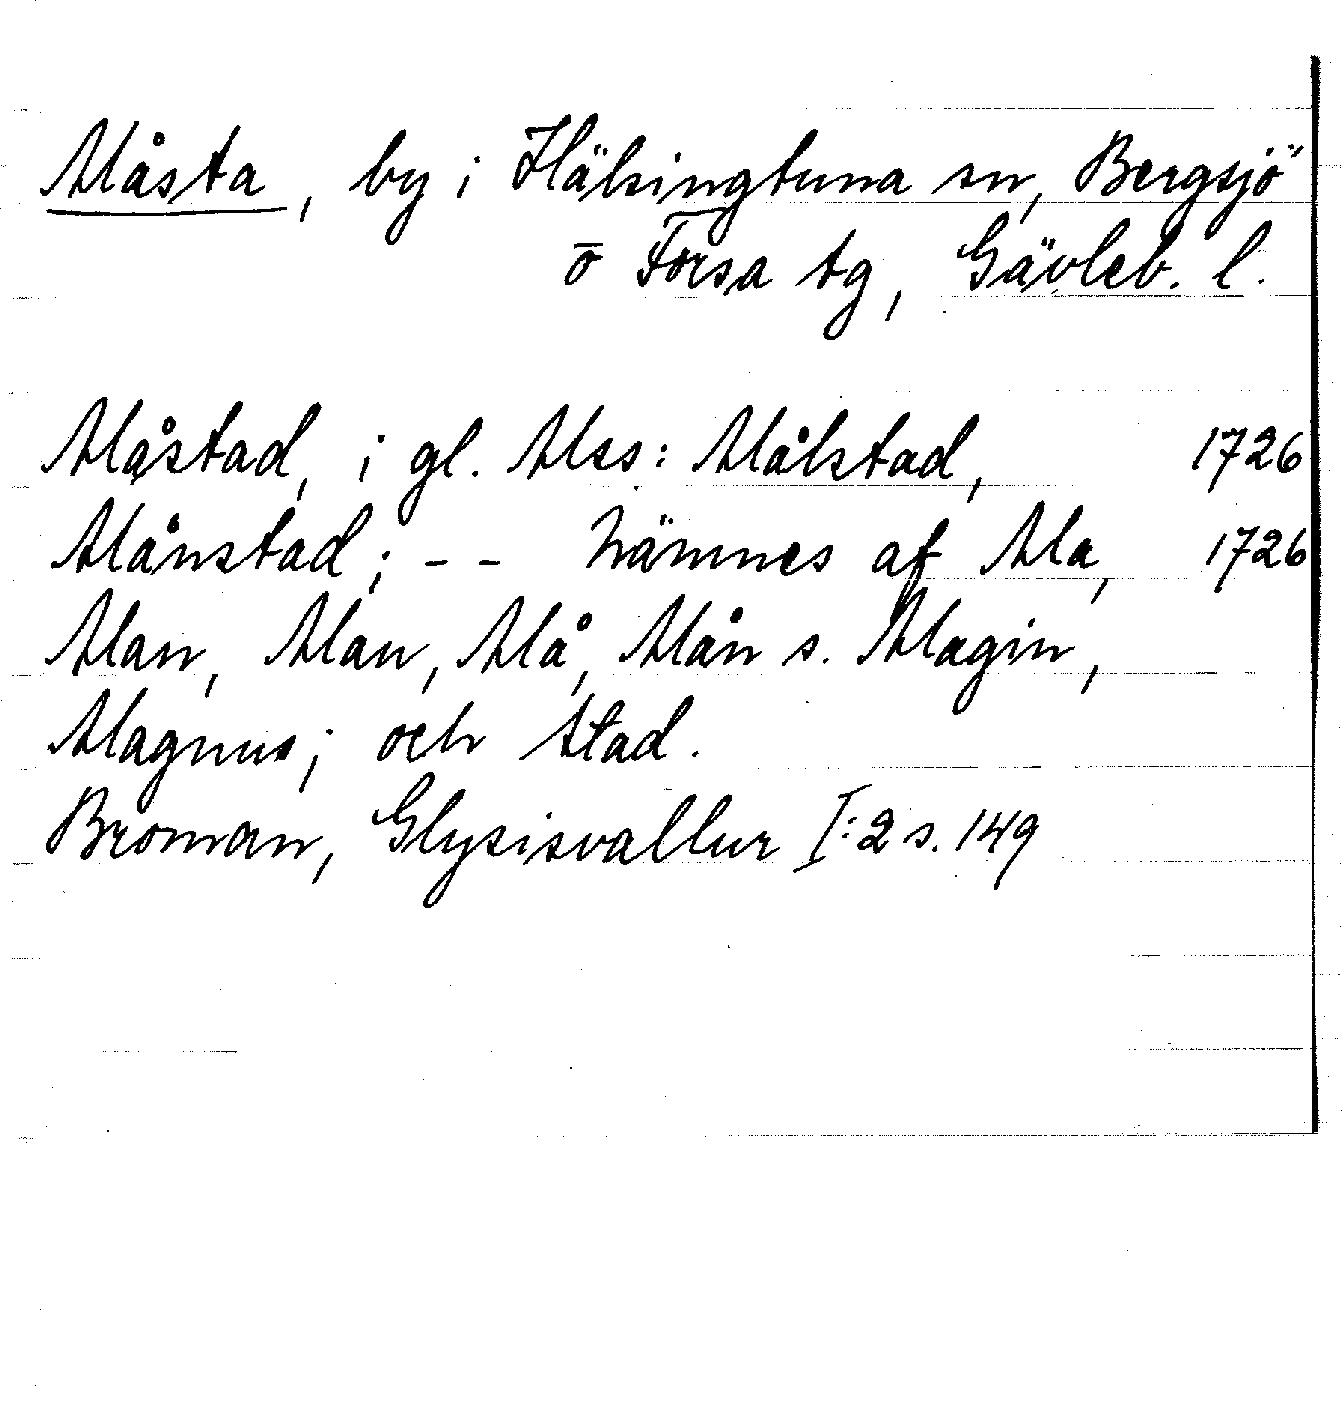 Måsta, by i Hälsingtuna sn, Bergsjö
o Forsa tg, Gävleb. l.
Måstad, i gl. Mss: Målstad, 1726
Månstad; -- Nämnes af Ma, 1726
Man, Mau, Må, Mån s. Magin,
Magnus; och Stad.
Broman, Glysisvallur I:2 s. 149